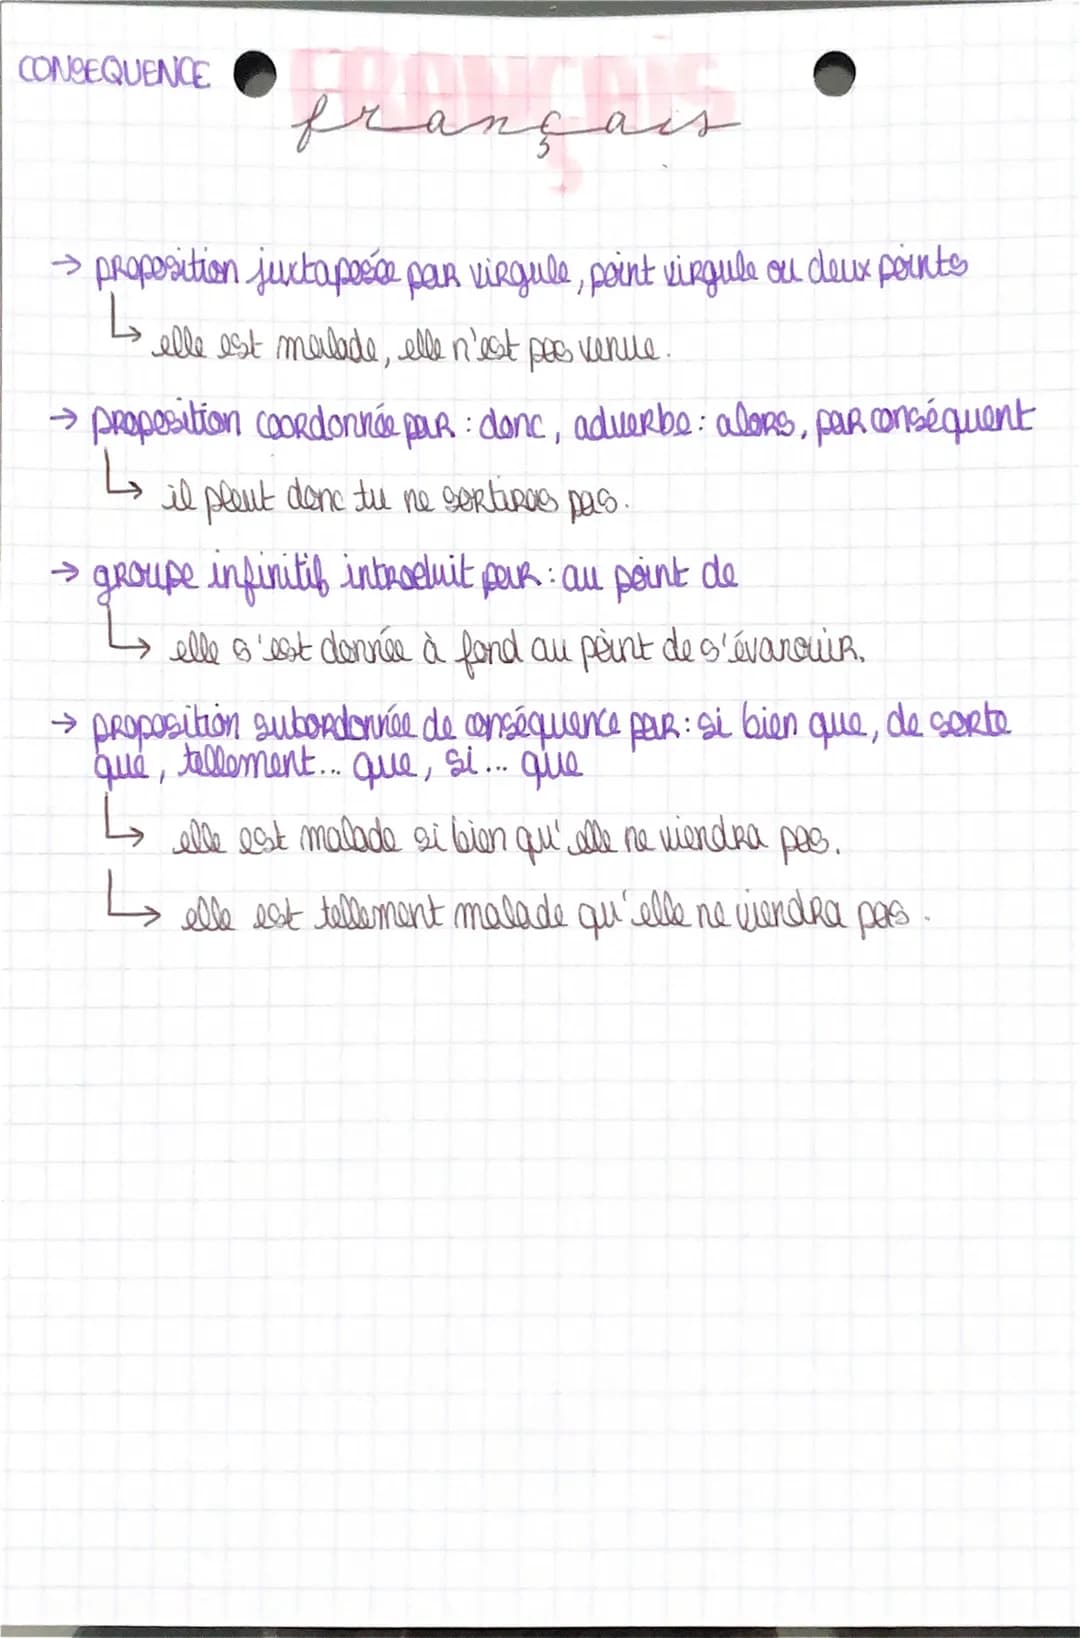 CONSEQUENCE
FRANÇAIS
français
→ proposition juxtaposée par virgule, point virgule ou deux points
↳ elle est malade, elle n'est pas venue.
→ proposition coordonnée par : donc, adverbe : alors, par conséquent
↳ il pleut donc tu ne sortiras pas.
→ groupe infinitif introduit par : au point de
↳ elle s'est donnée à fond au point de s'évanouir.
→ proposition subordonnée de conséquence par : si bien que, de sorte
que, tellement... que, si... que
↳ elle est malade si bien qu'elle ne viendra pas.
↳ elle est tellement malade qu'elle ne viendra pas.